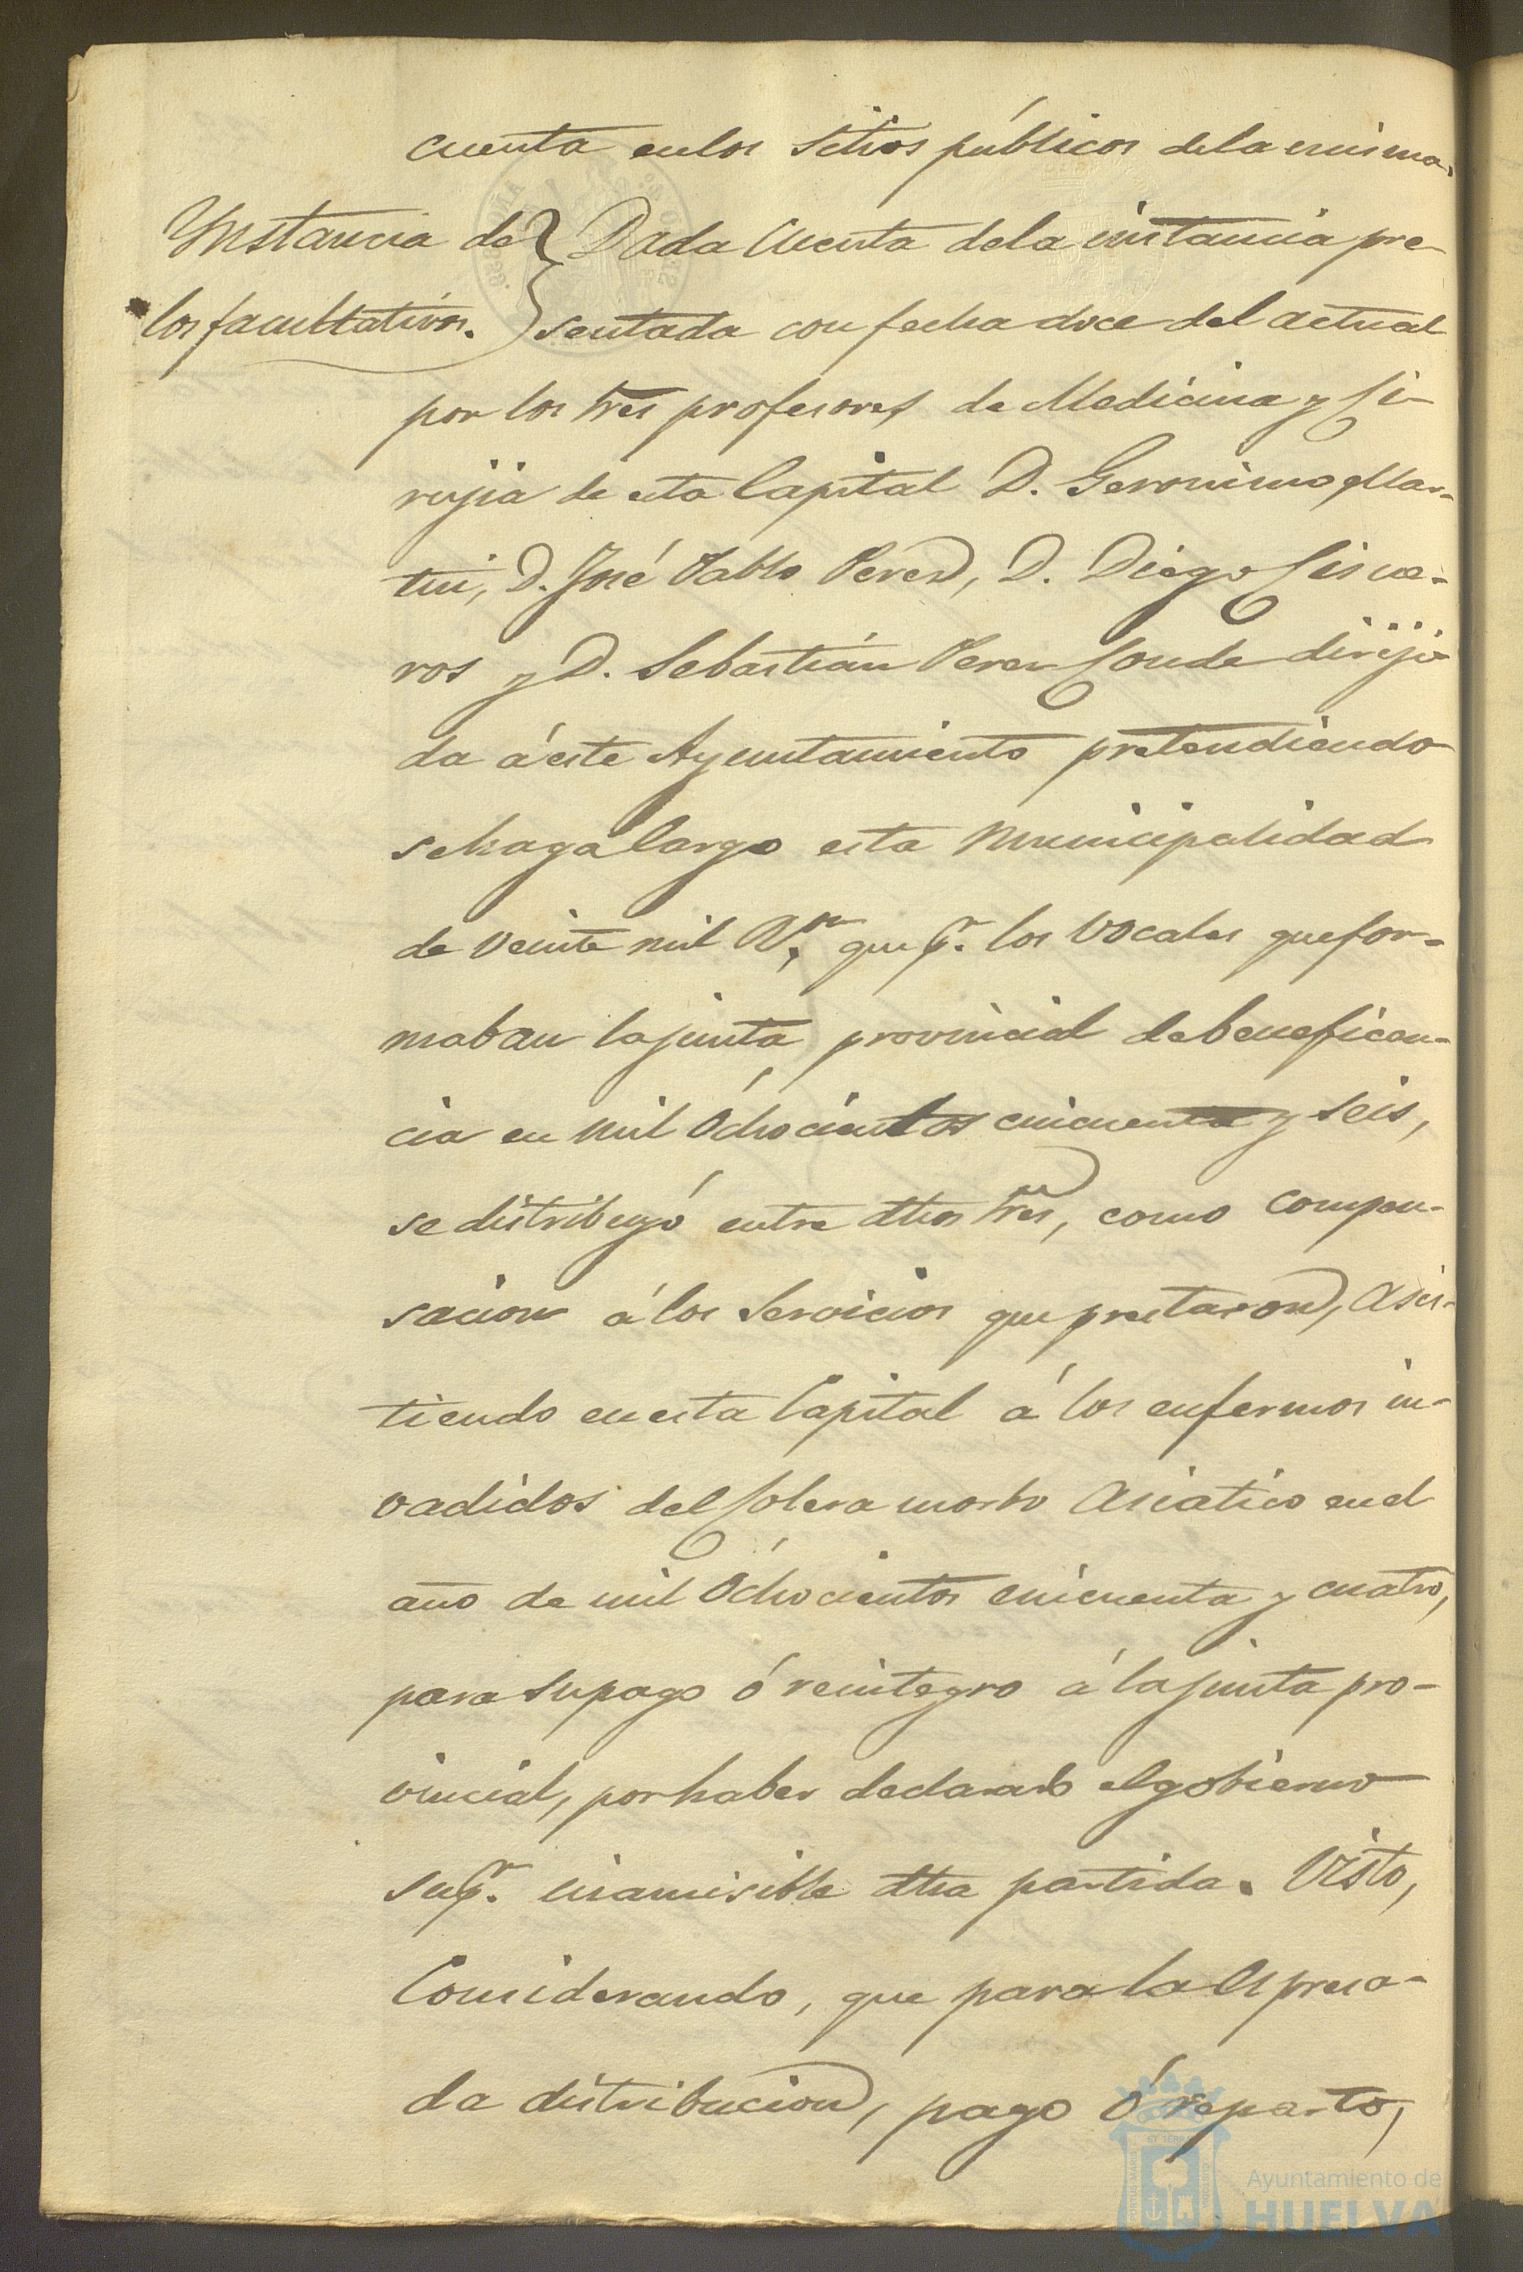 cuenta en los Sitios públicos de la misma.
Ynstancia de
los facultativos.
Dada Cuenta de la instancia pre-
sentada con fecha doce del actual
por los tres profesores de Medicina y Ci-
rujia de esta Capital D. Geronimo Mar-
tin, D. José Pablo Perez, D. Diego Cisne-
ros y D. Sebastián Perez Conde diriji-
da á este Ayuntamiento pretendiendo
se haga Cargo esta Municipalidad
de veinte mil Rs. vn que pr. los Vocales que for-
maban la junta provincial de beneficen-
cia en mil Ochocientos cincuenta y seis,
se distribuyó entre dhos tres, como compen-
sacion á los Servicios que prestaron, asis-
tiendo en esta Capital á los enfermos in-
vadidos del Colera morbo Asiatico en el
año de mil Ochocientos cincuenta y cuatro,
para su pago ó reintegro á la junta pro-
vincial, por haber declarado el gobierno
supr. inamisible dha partida. Visto,
Considerando, que para la espresa-
da distribucion, pago ó reparto,
Ayuntamiento de
HUELVA